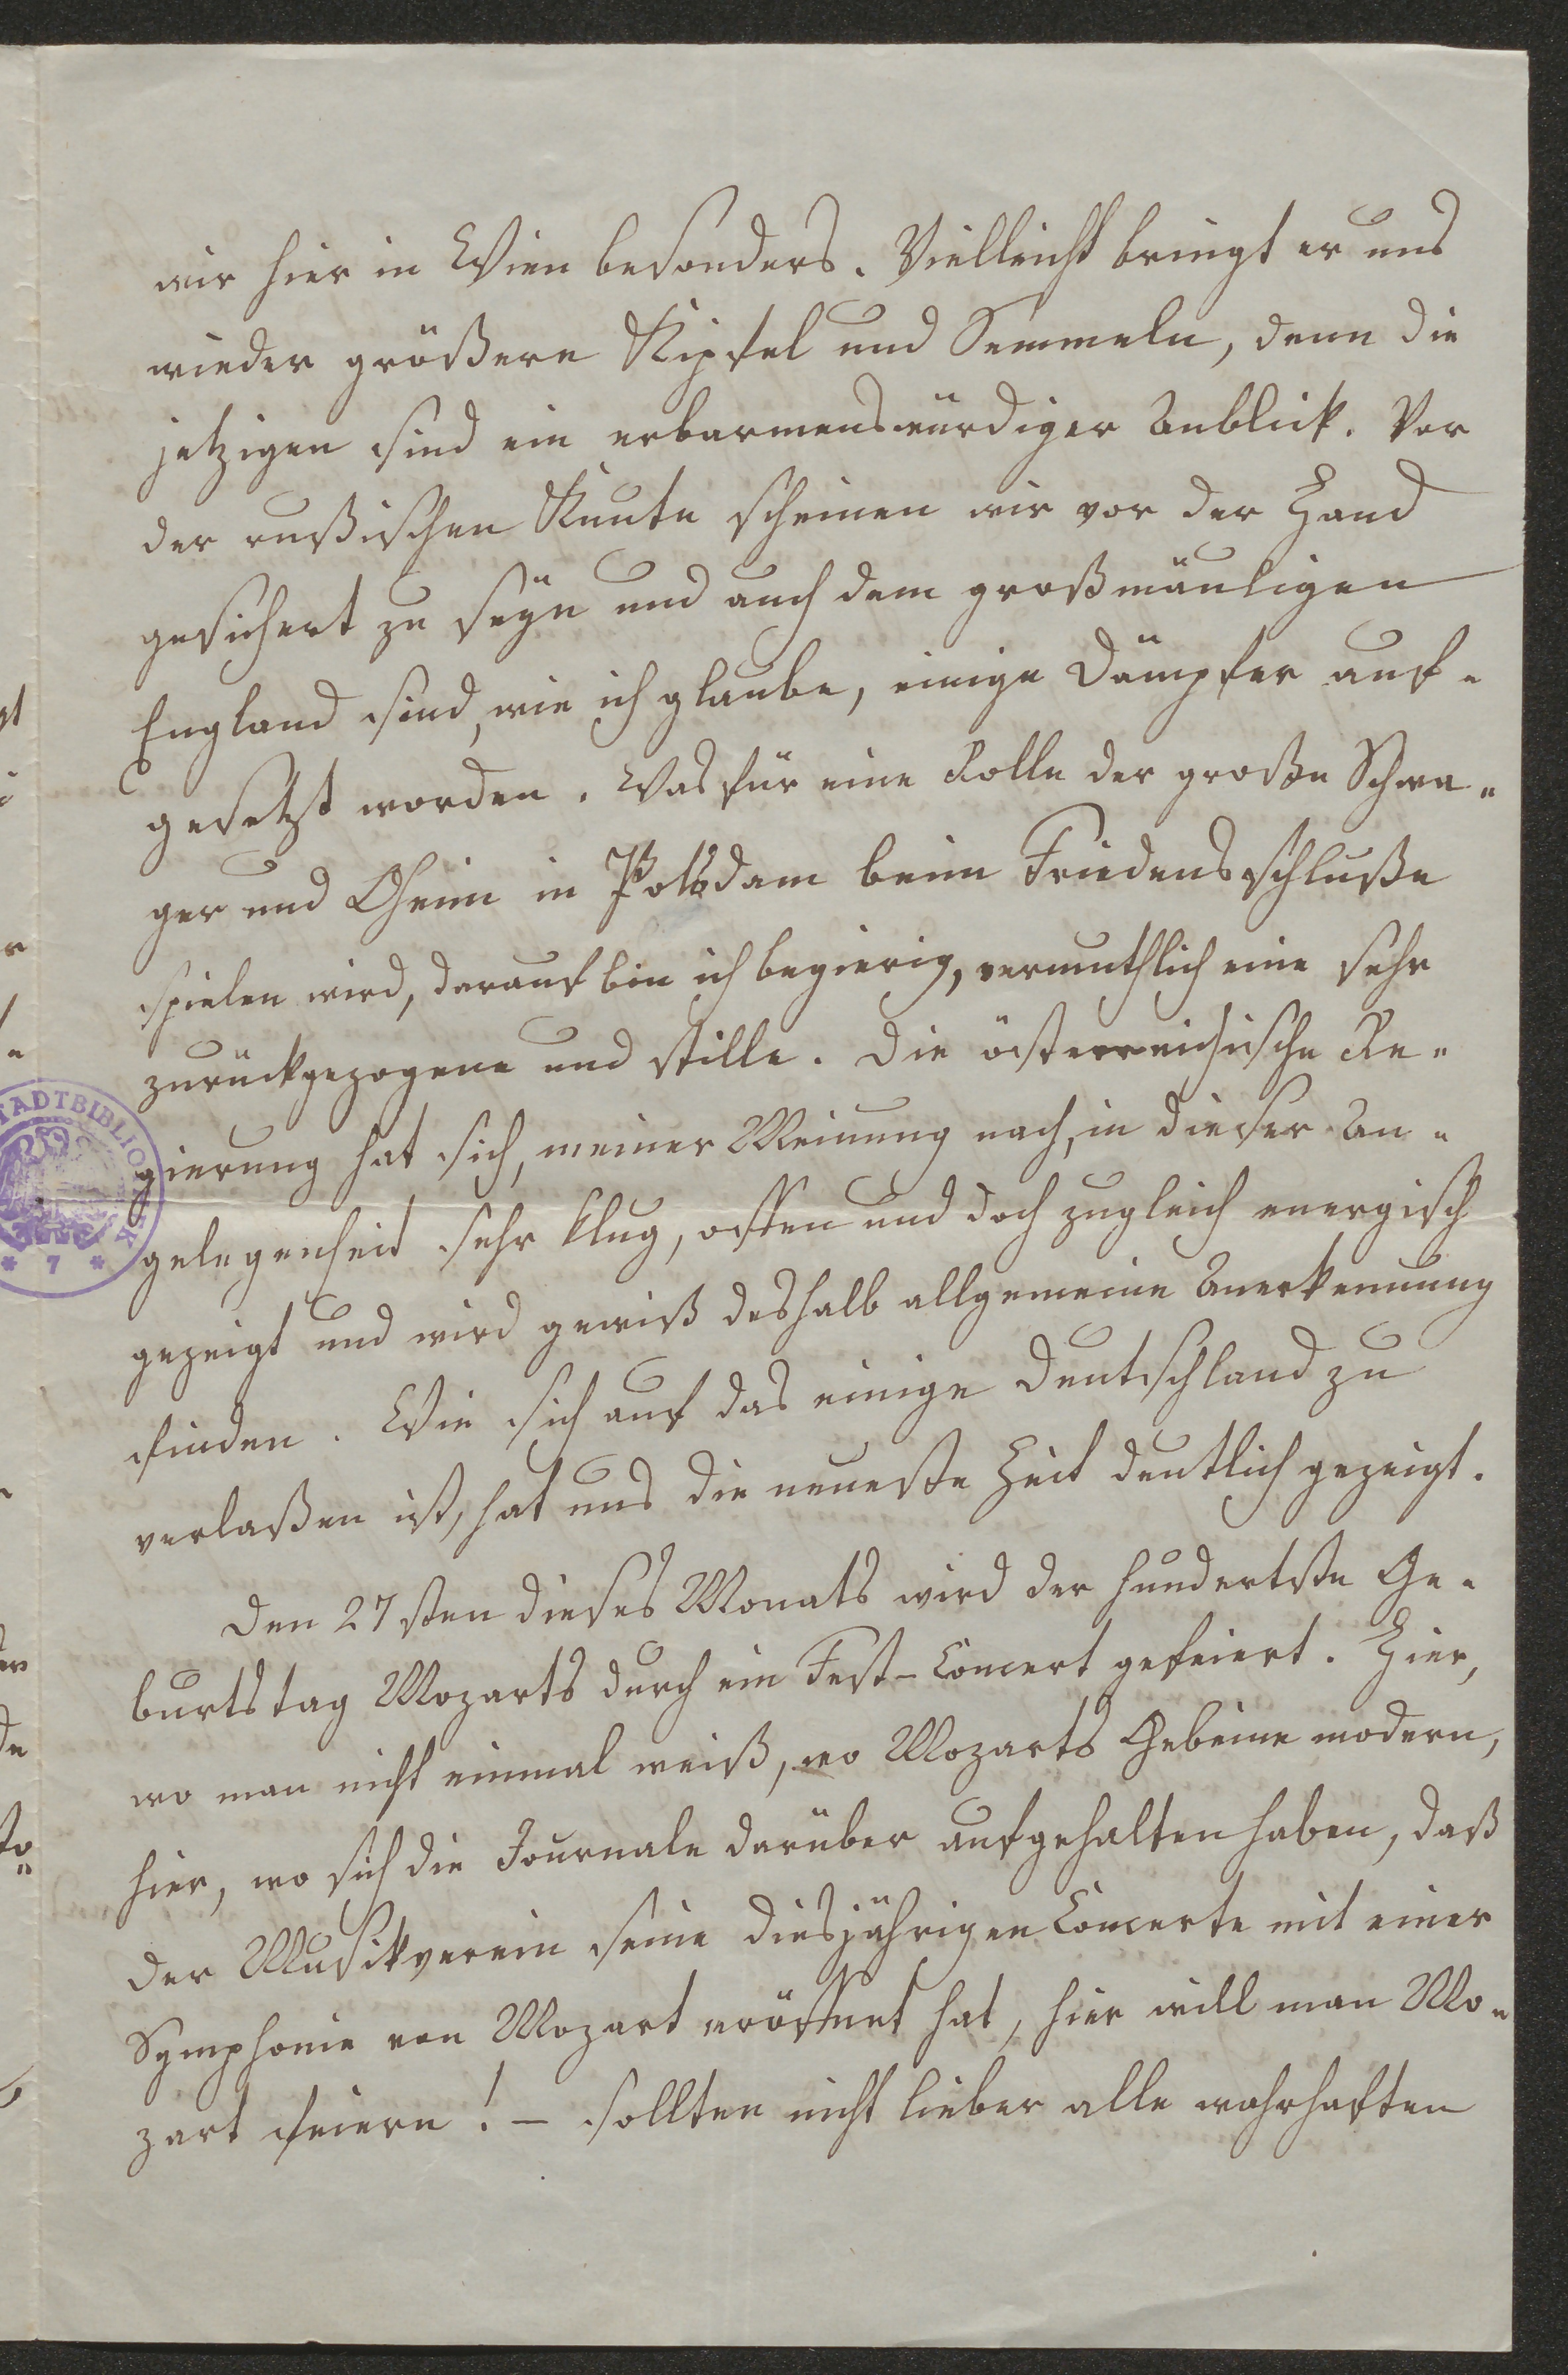 wir hier in Wien besonders. Vielleicht bringt er uns
wieder größere Kipfel und Semmeln, denn die
jetzigen sind ein erbarmenswürdiger Anblick. Vor
der rußischen Knute scheinen wir vor der Hand
gesichert zu seyn und auch dem großmäuligen
England sind, wie ich glaube, einige Dämpfer auf-
gesetzt worden. Was für eine Rolle der große Schwa-
ger und Oheim in Potsdam beim Friedensschluße
spielen wird, darauf bin ich begierig, vermuthlich eine sehr
zurückgezogene und stille. Die österreichische Re-
gierung hat sich, meiner Meinung nach, in dieser An-
gelegenheit sehr klug, offen und doch zugleich energisch
gezeigt und wird gewiß deshalb allgemeine Anerkennung
finden. Wie sich auf das einige Deutschland zu
verlaßen ist, hat uns die neueste Zeit deutlich gezeigt.
Den 27sten dieses Monats wird der hundertste Ge-
burtstag Mozarts durch ein Fest-Concert gefeiert. Hier,
wo man nicht einmal weiß, wo Mozarts Gebeine modern,
hier, wo sich die Journale darüber aufgehalten haben, daß
der Musikverein seine diesjährigen Concerte mit einer
Symphonie von Mozart eröffnet hat, hier will man Mo-
zart feiern! – sollten nicht lieber alle wahrhaften
STADTBIBLIOTHEK
* 7 *